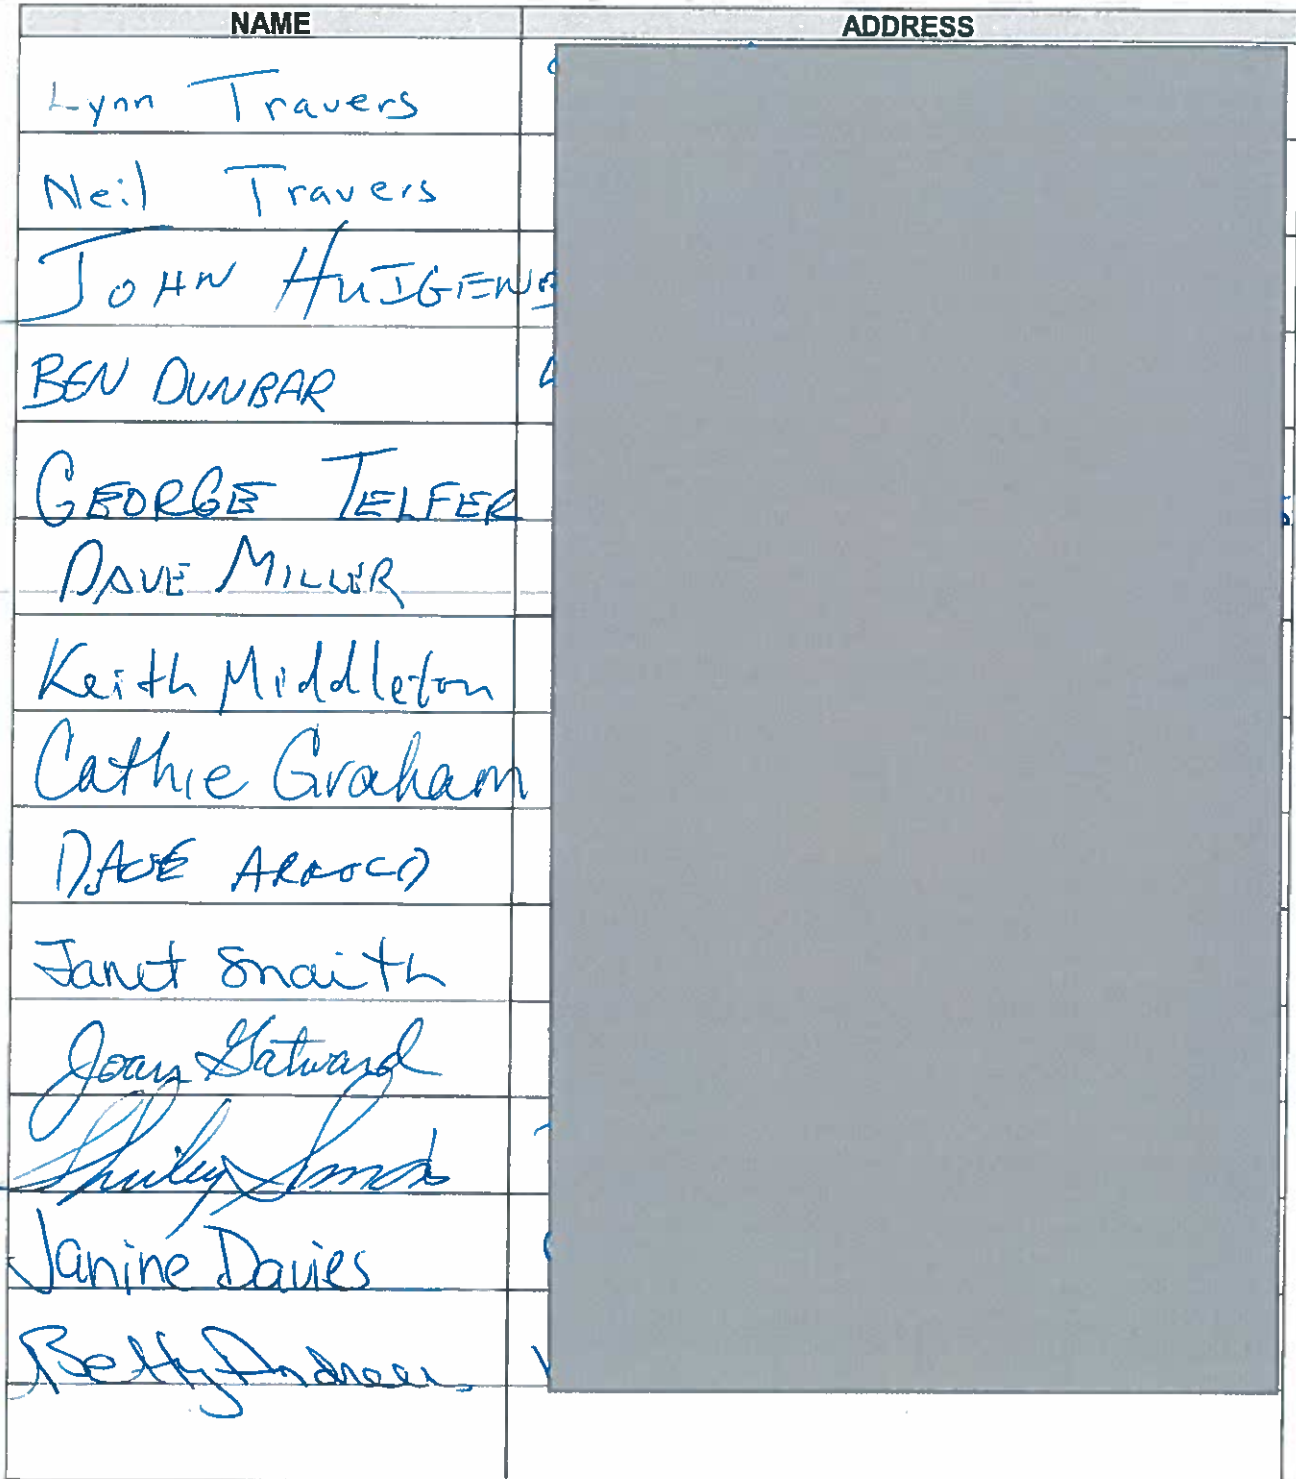 NAME ADDRESS
Lynn Travers
Neil Travers
JOHN HUIGEN
BEN DUNBAR
GEORGE TELFER
DAVE MILLER
Keith Middleton
Cathie Graham
DAVE ARNOLD
Janet Snaith
Joan Gatward
Shirley
Janine Davies
Betty